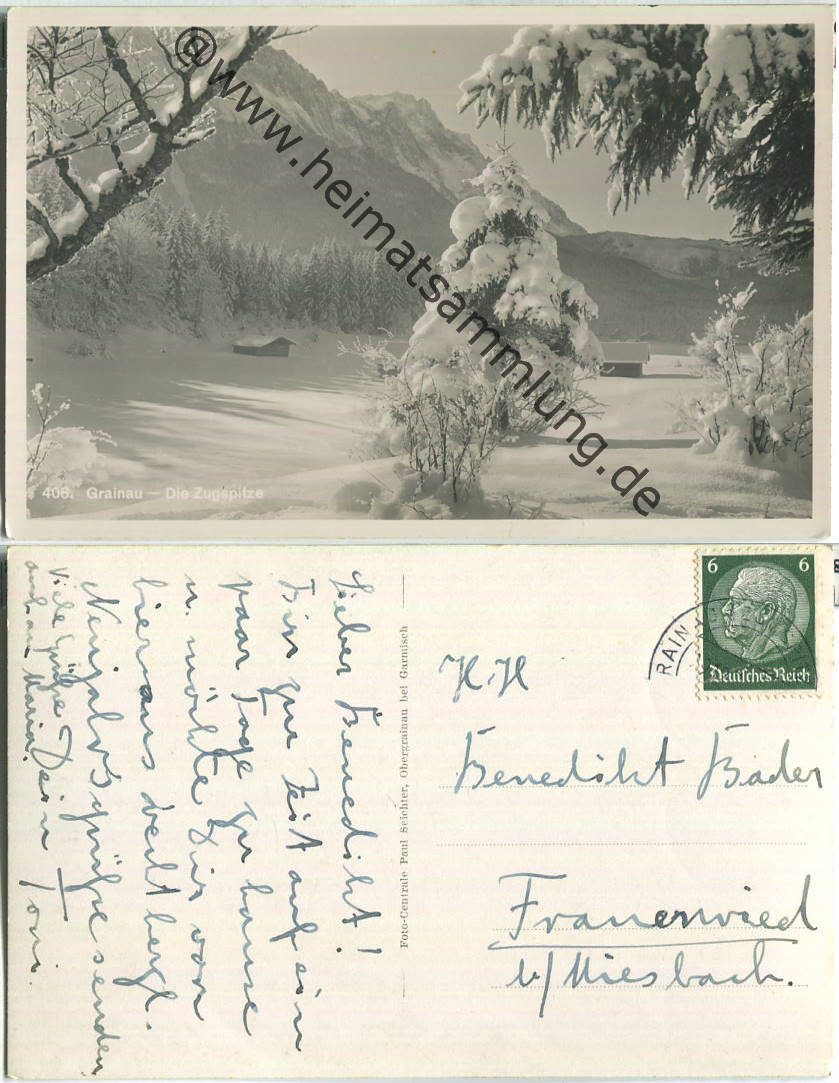 @www.heimatsammlung.de
406. Grainau — Die Zugspitze
Lieber Benedikt!
Bin zur Zeit auf ein
paar Tage zu hause
u. möchte Dir von
hier aus recht herzl.
Neujahrsgrüße senden
Dein Toni.
Viele Grüße
auch an Maria.
Foto-Centrale Paul Seichter, Obergrainau bei Garmisch
6 6
Deutsches Reich
RAIN
H. H
Benedikt Bader
Frauenried
b/ Miesbach.